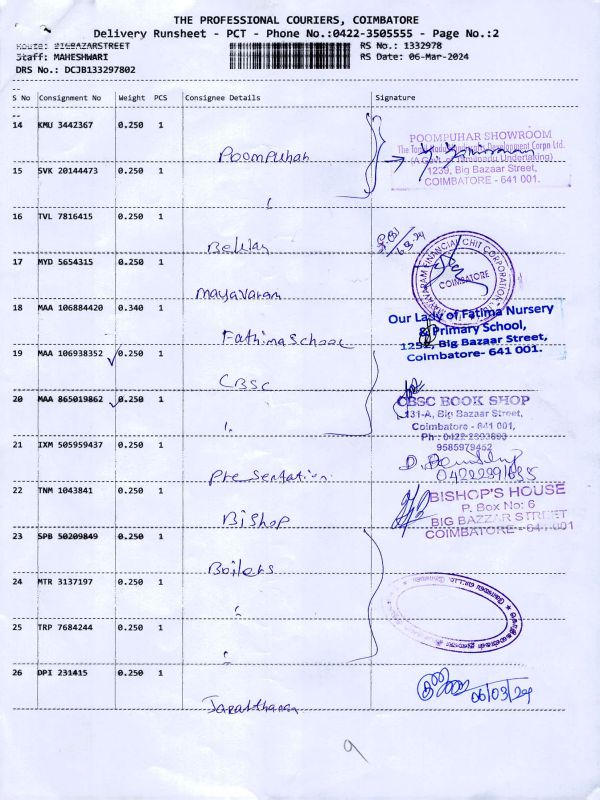 THE PROFESSIONAL COURIERS, COIMBATORE
Delivery Runsheet - PCT - Phone No.:0422-3505555 - Page No.:2
Route: BIGBAZARSTREET
RS No.: 1332978
Staff: MAHESHWARI
RS Date: 06-Mar-2024
DRS No.: DCJB133297802
S No Consignment No Weight PCS Consignee Details Signature
14 KMU 3442367 0.250 1
Poompuhar
POOMPUHAR SHOWROOM
(A Govt. of Tamilnadu Undertaking)
1239, Big Bazaar Street,
COIMBATORE - 641 001.
15 SVK 20144473 0.250 1
"
16 TVL 7816415 0.250 1
17 MYD 5654315 0.250 1
Mayavaram
MAYAVARAM FINANCIAL CHIT CORPORATION
COIMBATORE
18 MAA 106884420 0.340 1
Fathima School
Our Lady of Fatima Nursery
& Primary School,
1252, Big Bazaar Street,
Coimbatore- 641 001.
19 MAA 106938352 0.250 1
CBSC
20 MAA 865019862 0.250 1
"
CBSC BOOK SHOP
131-A, Big Bazaar Street,
Coimbatore - 641 001.
9585979452
21 IXM 505959437 0.250 1
Presentation
22 TNM 1043841 0.250 1
Bishop
BISHOP'S HOUSE
P. Box No: 6
BIG BAZZAR STREET
COIMBATORE - 641 001
23 SPB 50209849 0.250 1
24 MTR 3137197 0.250 1
"
25 TRP 7684244 0.250 1
"
26 DPI 231415 0.250 1
06/03/24
9